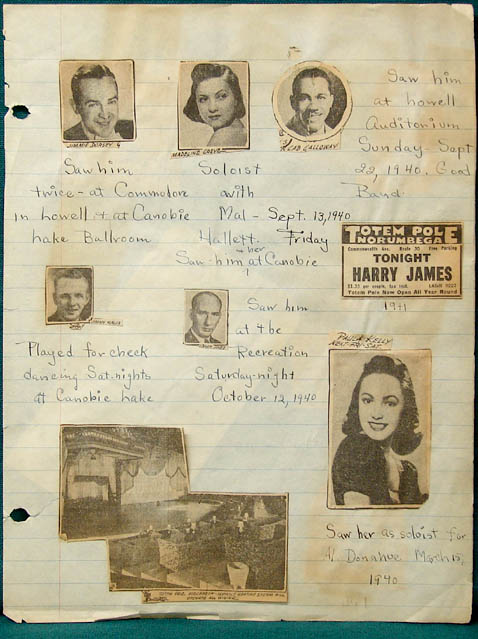 JIMMIE DORSEY
MADELINE GREYE
CAB CALLOWAY
Saw him
at Lowell
Auditorium
Sunday-Sept
22, 1940. Good
Band.
Saw him
twice-at Commodore
in Lowell + at Canobie
Lake Ballroom
Soloist
with
Mal-Sept. 13, 1940
Hallett. Friday
her
Saw-him at Canobie
TOTEM POLE
NORUMBEGA
Commonwealth Ave. Route 30 Free Parking
TONIGHT
HARRY JAMES
$1.35 per couple, tax incl.
Totem Pole Now Open All Year Round
1941
Played for check
dancing Sat-nights
at Canobie Lake
Saw him
at the
Recreation
Saturday-night
October 12, 1940
PAULA KELLY
Saw her as soloist for
Al Donahue March 15,
1940